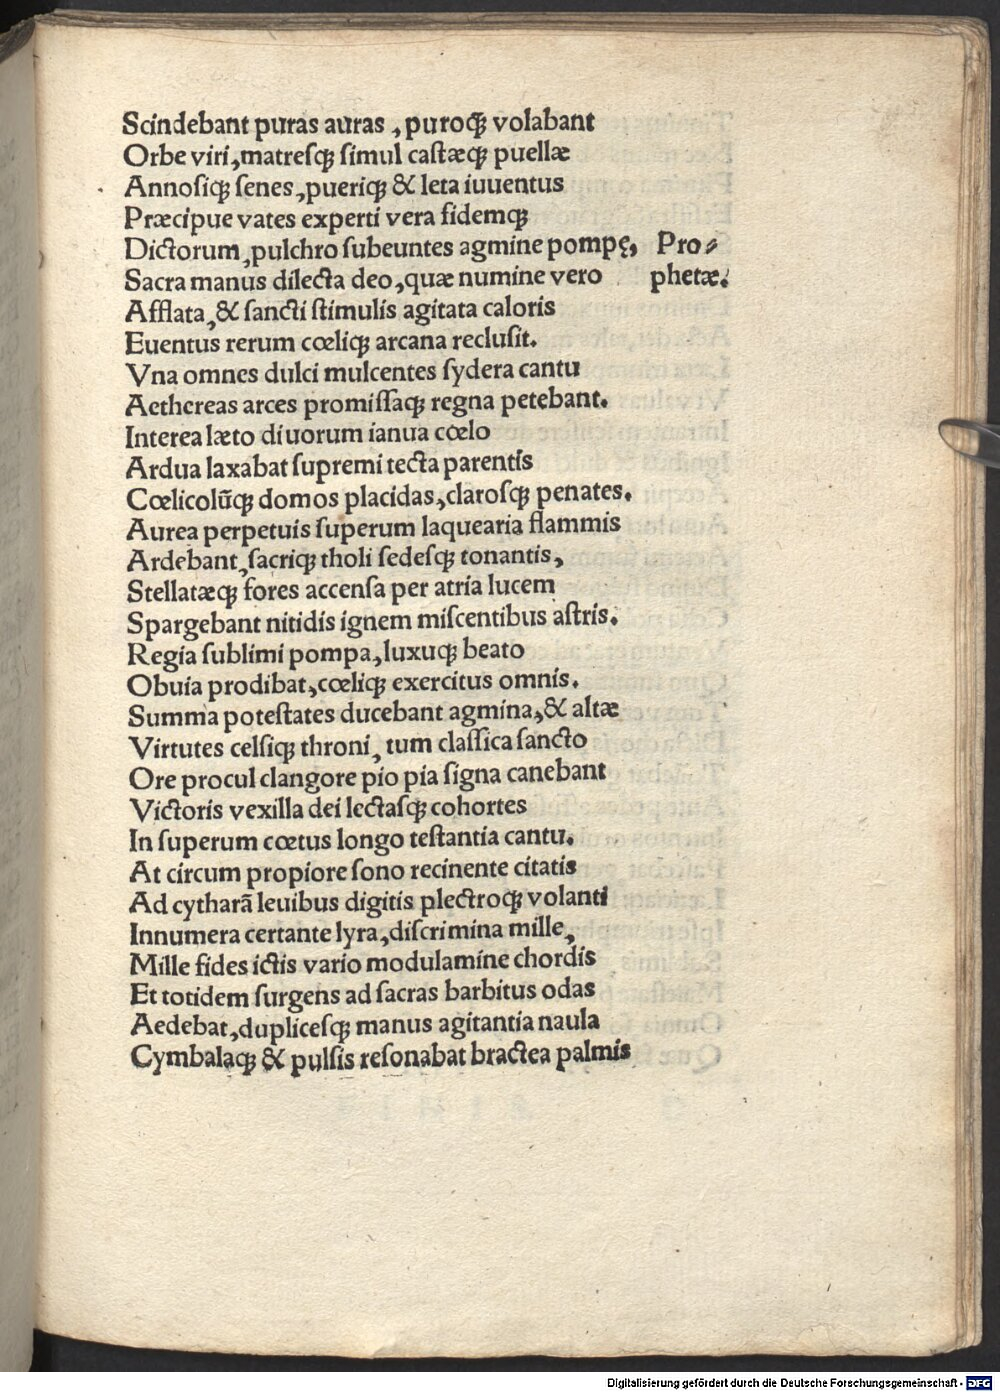 Scindebant puras auras , puroqꝫ volabant
Orbe viri,matreſqꝫ ſimul caſtæqꝫ puellæ
Annoſiqꝫ ſenes,pueriqꝫ & leta iuuentus
Præcipue vates experti vera fidemqꝫ
Dictorum,pulchro ſubeuntes agmine pompę, Pro⸗
Sacra manus dilecta deo,quæ numine vero phetæ.
Afflata,& ſancti ſtimulis agitata caloris
Euentus rerum cœliqꝫ arcana recluſit.
Vna omnes dulci mulcentes ſydera cantu
Aethereas arces promiſſaqꝫ regna petebant.
Interea læto diuorum ianua cœlo
Ardua laxabat ſupremi tecta parentis
Cœlicolūqꝫ domos placidas,claroſqꝫ penates.
Aurea perpetuis ſuperum laquearia flammis
Ardebant,ſacriqꝫ tholi ſedeſqꝫ tonantis,
Stellatæqꝫ fores accenſa per atria lucem
Spargebant nitidis ignem miſcentibus aſtris.
Regia ſublimi pompa,luxuqꝫ beato
Obuia prodibat,cœliqꝫ exercitus omnis.
Summa poteſtates ducebant agmina,& altæ
Virtutes celſiqꝫ throni, tum claſſica ſancto
Ore procul clangore pio pia ſigna canebant
Victoris vexilla dei lectaſqꝫ cohortes
In ſuperum cœtus longo teſtantia cantu.
At circum propiore ſono recinente citatis
Ad cytharā leuibus digitis plectroqꝫ volanti
Innumera certante lyra,diſcrimina mille,
Mille fides ictis vario modulamine chordis
Et totidem ſurgens ad ſacras barbitus odas
Aedebat,dupliceſqꝫ manus agitantia naula
Cymbalaqꝫ & pulſis reſonabat bractea palmis
Digitalisierung gefördert durch die Deutsche Forschungsgemeinschaft - DFG